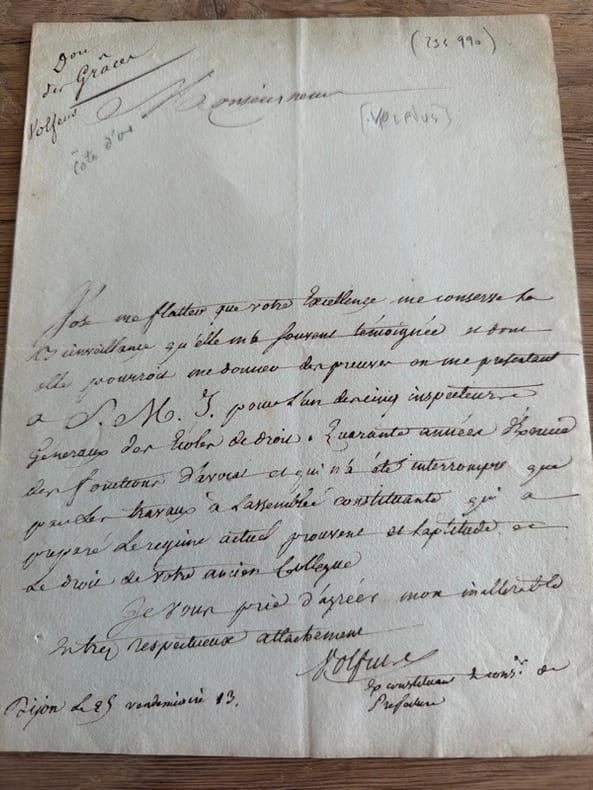 Don
des Grâces
Volfeus
Côte d'or
(235 990)
Monseigneur
[VOLFIUS]
J'ose me flatter que votre Excellence me conserve la
Bienveillance qu'elle m'a souvent témoignée et dont
elle pourroit me donner des preuves en me présentant
a S. M. I. pour l'un des cinq inspecteurs
Generaux des Ecoles de droit. Quarante années
des fonctions d'avocat et qui n'a été interrompu que
par les travaux à l'assemblée constituante qui a
preparé le regime actuel prouvent et l'aptitude et
le droit de votre ancien Collegue
Je vous prie d'agréer mon inalterable
et tres respectueux attachement
Volfius
ex constituant & cons.er de
Prefecture
Dijon le 25 vendemiaire 13.